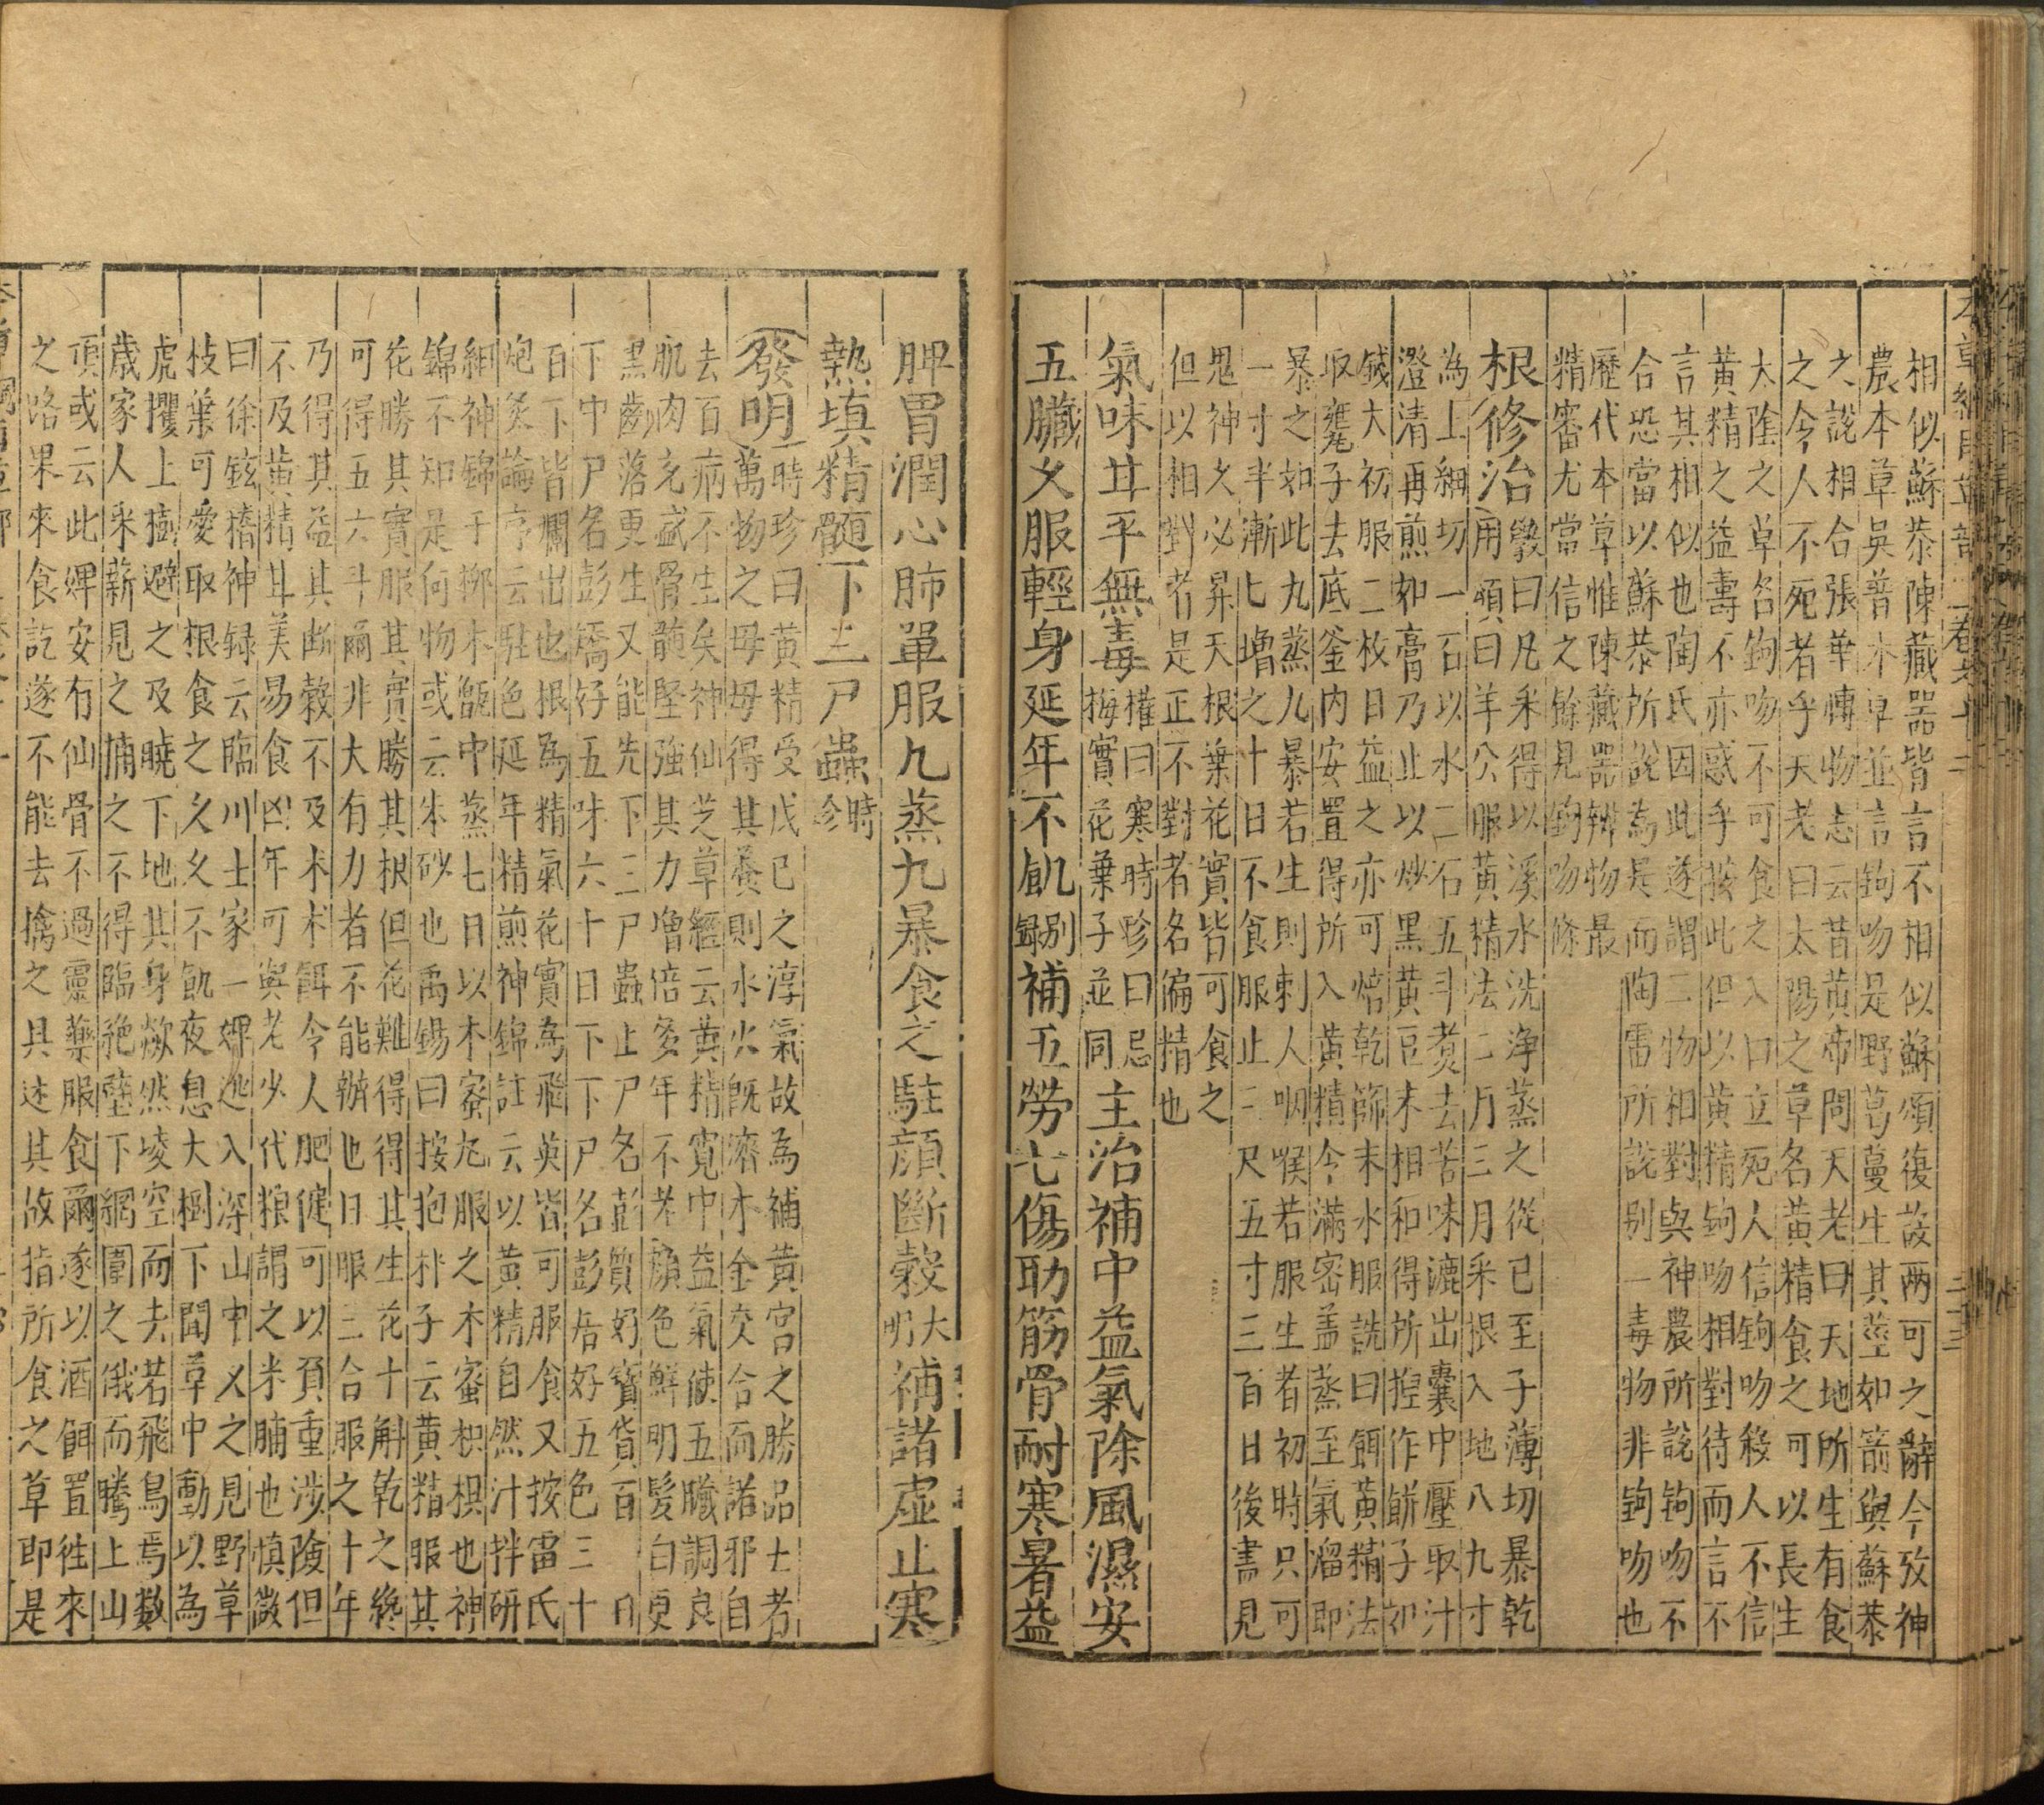 本草綱目草部 卷之十二 二十三
相似蘇恭陳藏器皆言不相似蘇頌復故两可之辭今攷神
農本草吳普本草並言鉤吻是野葛蔓生其莖如箭與蘇恭
之說相合張華博物志云昔黃帝問天老曰天地所生有食
之令人不死者乎天老曰太陽之草名黃精食之可以長生
太陰之草名鉤吻不可食之入口立死人信鉤吻殺人不信
黃精之益壽不亦惑乎按此但以黃精鉤吻相對待而言不
言其相似也陶氏因此遂謂二物相對與神農所說鉤吻不
合恐當以蘇恭所說為是而陶雷所說别一毒物非鉤吻也
歷代本草惟陳藏器辨物最
精審尤當信之餘見鉤吻條
根修治
斅曰凡采得以溪水洗浄蒸之從巳至子薄切暴乾
用頌曰羊公服黃精法二月三月采根入地八九寸
為上細切一石以水二石五斗煑去苦味漉出囊中壓取汁
澄清再煎如膏乃止以炒黑黃豆末相和得所捏作餅子如
錢大初服二枚日益之亦可焙乾篩末水服詵曰餌黃精法
取甕子去底釜内安置得所入黃精令滿密盖蒸至氣溜即
暴之如此九蒸九暴若生則刺人咽喉若服生者初時只可
一寸半漸漸增之十日不食服止三尺五寸三百日後盡見
鬼神久必昇天根葉花實皆可食之
但以相對者是正不對者名偏精也
氣味甘平無毒
權曰寒時珍曰忌
梅實花葉子並同
主治補中益氣除風濕安
五臟久服輕身延年不飢
别
錄
補五勞七傷助筋骨耐寒暑益
脾胃潤心肺單服九蒸九暴食之駐顔斷穀
大
明
補諸虚止寒
熱填精髓下三尸蟲
時
珍
發明
時珍曰黃精受戊己之淳氣故為補黃宮之勝品土者
萬物之母母得其養則水火既濟木金交合而諸邪自
去百病不生矣神仙芝草經云黃精寛中益氣使五臟調良
肌肉充盛骨髓堅強其力增倍多年不老顔色鮮明髮白更
黑齒落更生又能先下三尸蟲上尸名彭質好寳貨百日
下中尸名彭矯好五味六十日下下尸名彭居好五色三十
日下皆爛出也根為精氣花實為飛英皆可服食又按雷氏
炮炙論序云駐色延年精煎神錦註云以黃精自然汁拌研
細神錦于柳木甑中蒸七日以木蜜丸服之木蜜枳椇也神
錦不知是何物或云朱砂也禹錫曰按抱朴子云黃精服其
花勝其實服其實勝其根但花難得得其生花十斛乾之纔
可得五六斗爾非大有力者不能辦也日服三合服之十年
乃得其益其斷穀不及术术餌令人肥健可以負重涉險但
不及黃精甘美易食凶年可與老少代粮謂之米脯也慎微
曰徐鉉稽神録云臨川士家一婢逃入深山中久之見野草
枝葉可愛取根食之久久不飢夜息大樹下聞草中動以為
虎攫上樹避之及曉下地其身欻然凌空而去若飛鳥焉數
歲家人采薪見之捕之不得臨絶壁下網圍之俄而騰上山
頂或云此婢安有仙骨不過靈藥服食爾遂以酒餌置徃來
之路果來食訖遂不能去擒之具述其故指所食之草即是